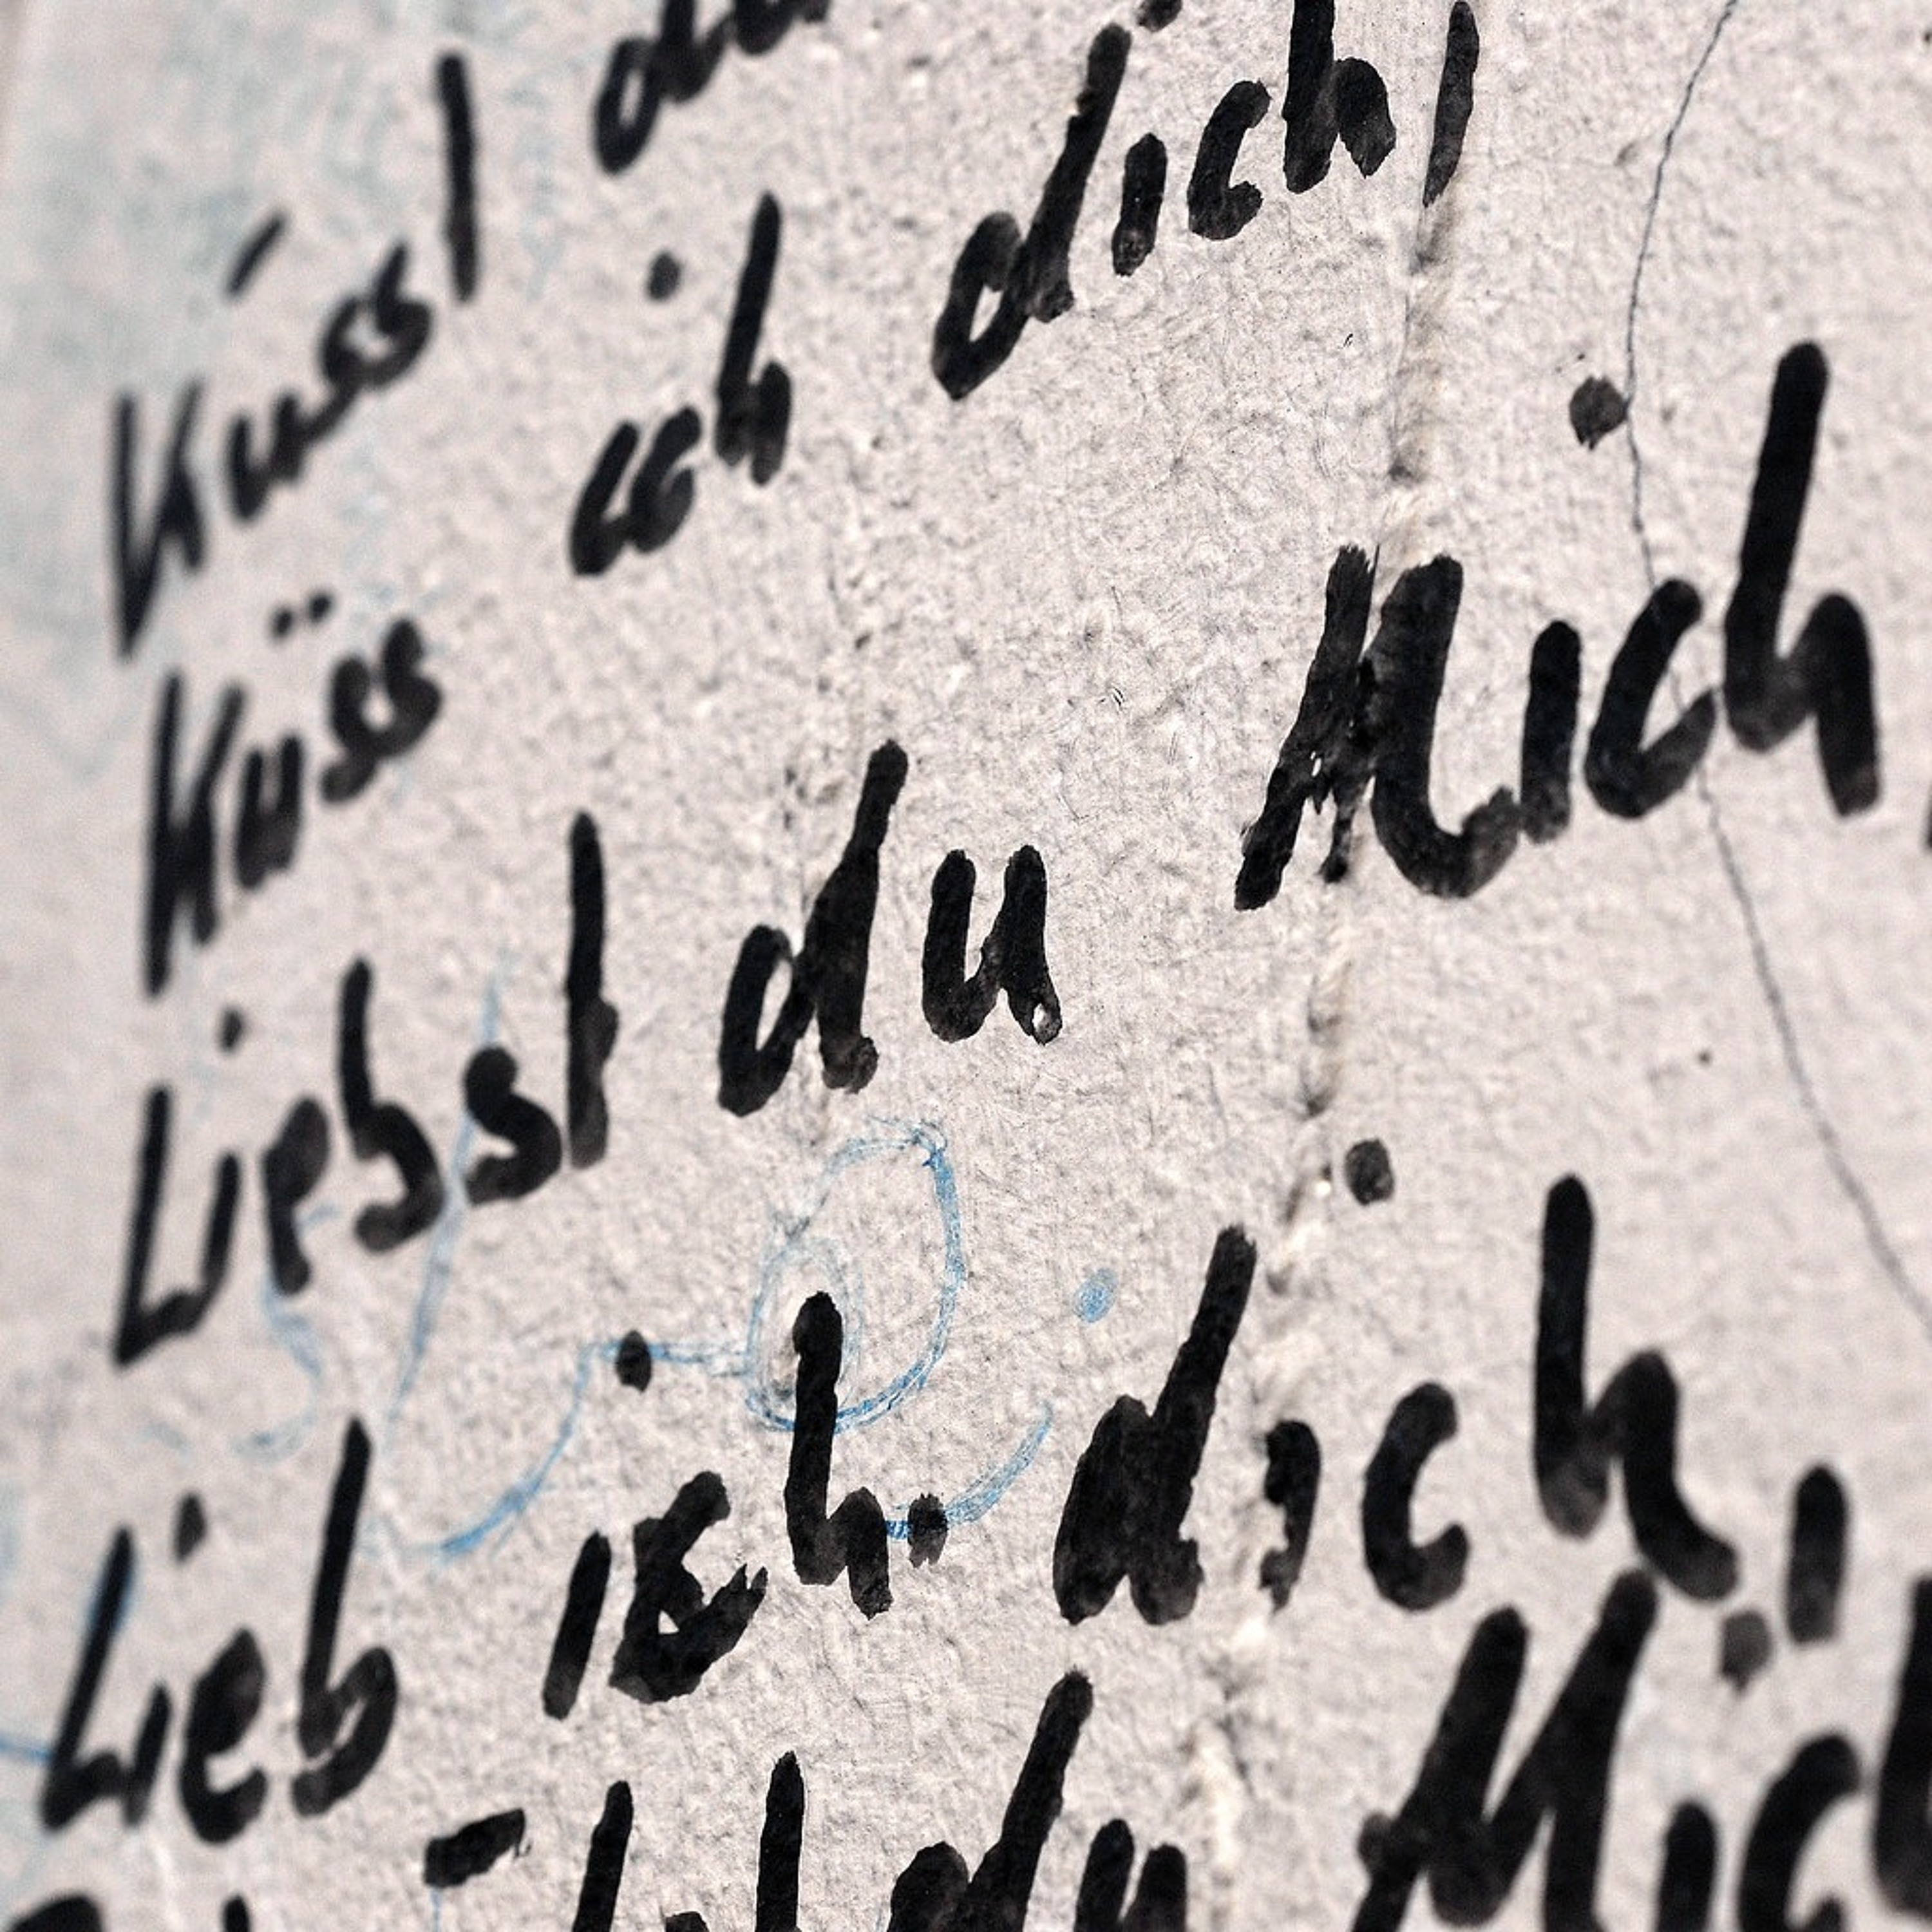 Küsst du
Küss ich dich,
Liebst du Mich
Lieb ich dich,
du Mich